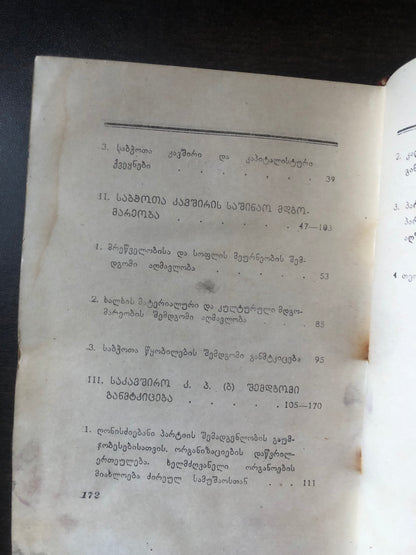 3. საბჭოთა კავშირი და კაპიტალისტური
ქვეყნები . . . . . . . 39
II. საბჭოთა კავშირის საშინაო მდგო-
მარეობა . . . . . . 47—103
1. მრეწველობისა და სოფლის მეურნეობის შემ-
დგომი აღმავლობა . . . . . 53
2. ხალხის მატერიალური და კულტურული მდგო-
მარეობის შემდგომი აღმავლობა . . . 85
3. საბჭოთა წყობილების შემდგომი განმტკიცება 95
III. საკავშირო კ. პ. (ბ) შემდგომი
განმტკიცება . . . . 105—170
1. ღონისძიებანი პარტიის შემადგენლობის გაუმ-
ჯობესებისათვის, ორგანიზაციების დაწვრილ-
ერთეულება, ხელმძღვანელი ორგანოების
მიახლოება ძირეულ სამუშაოსთან . . 111
172
2. კად
3. პარ
4 თეო